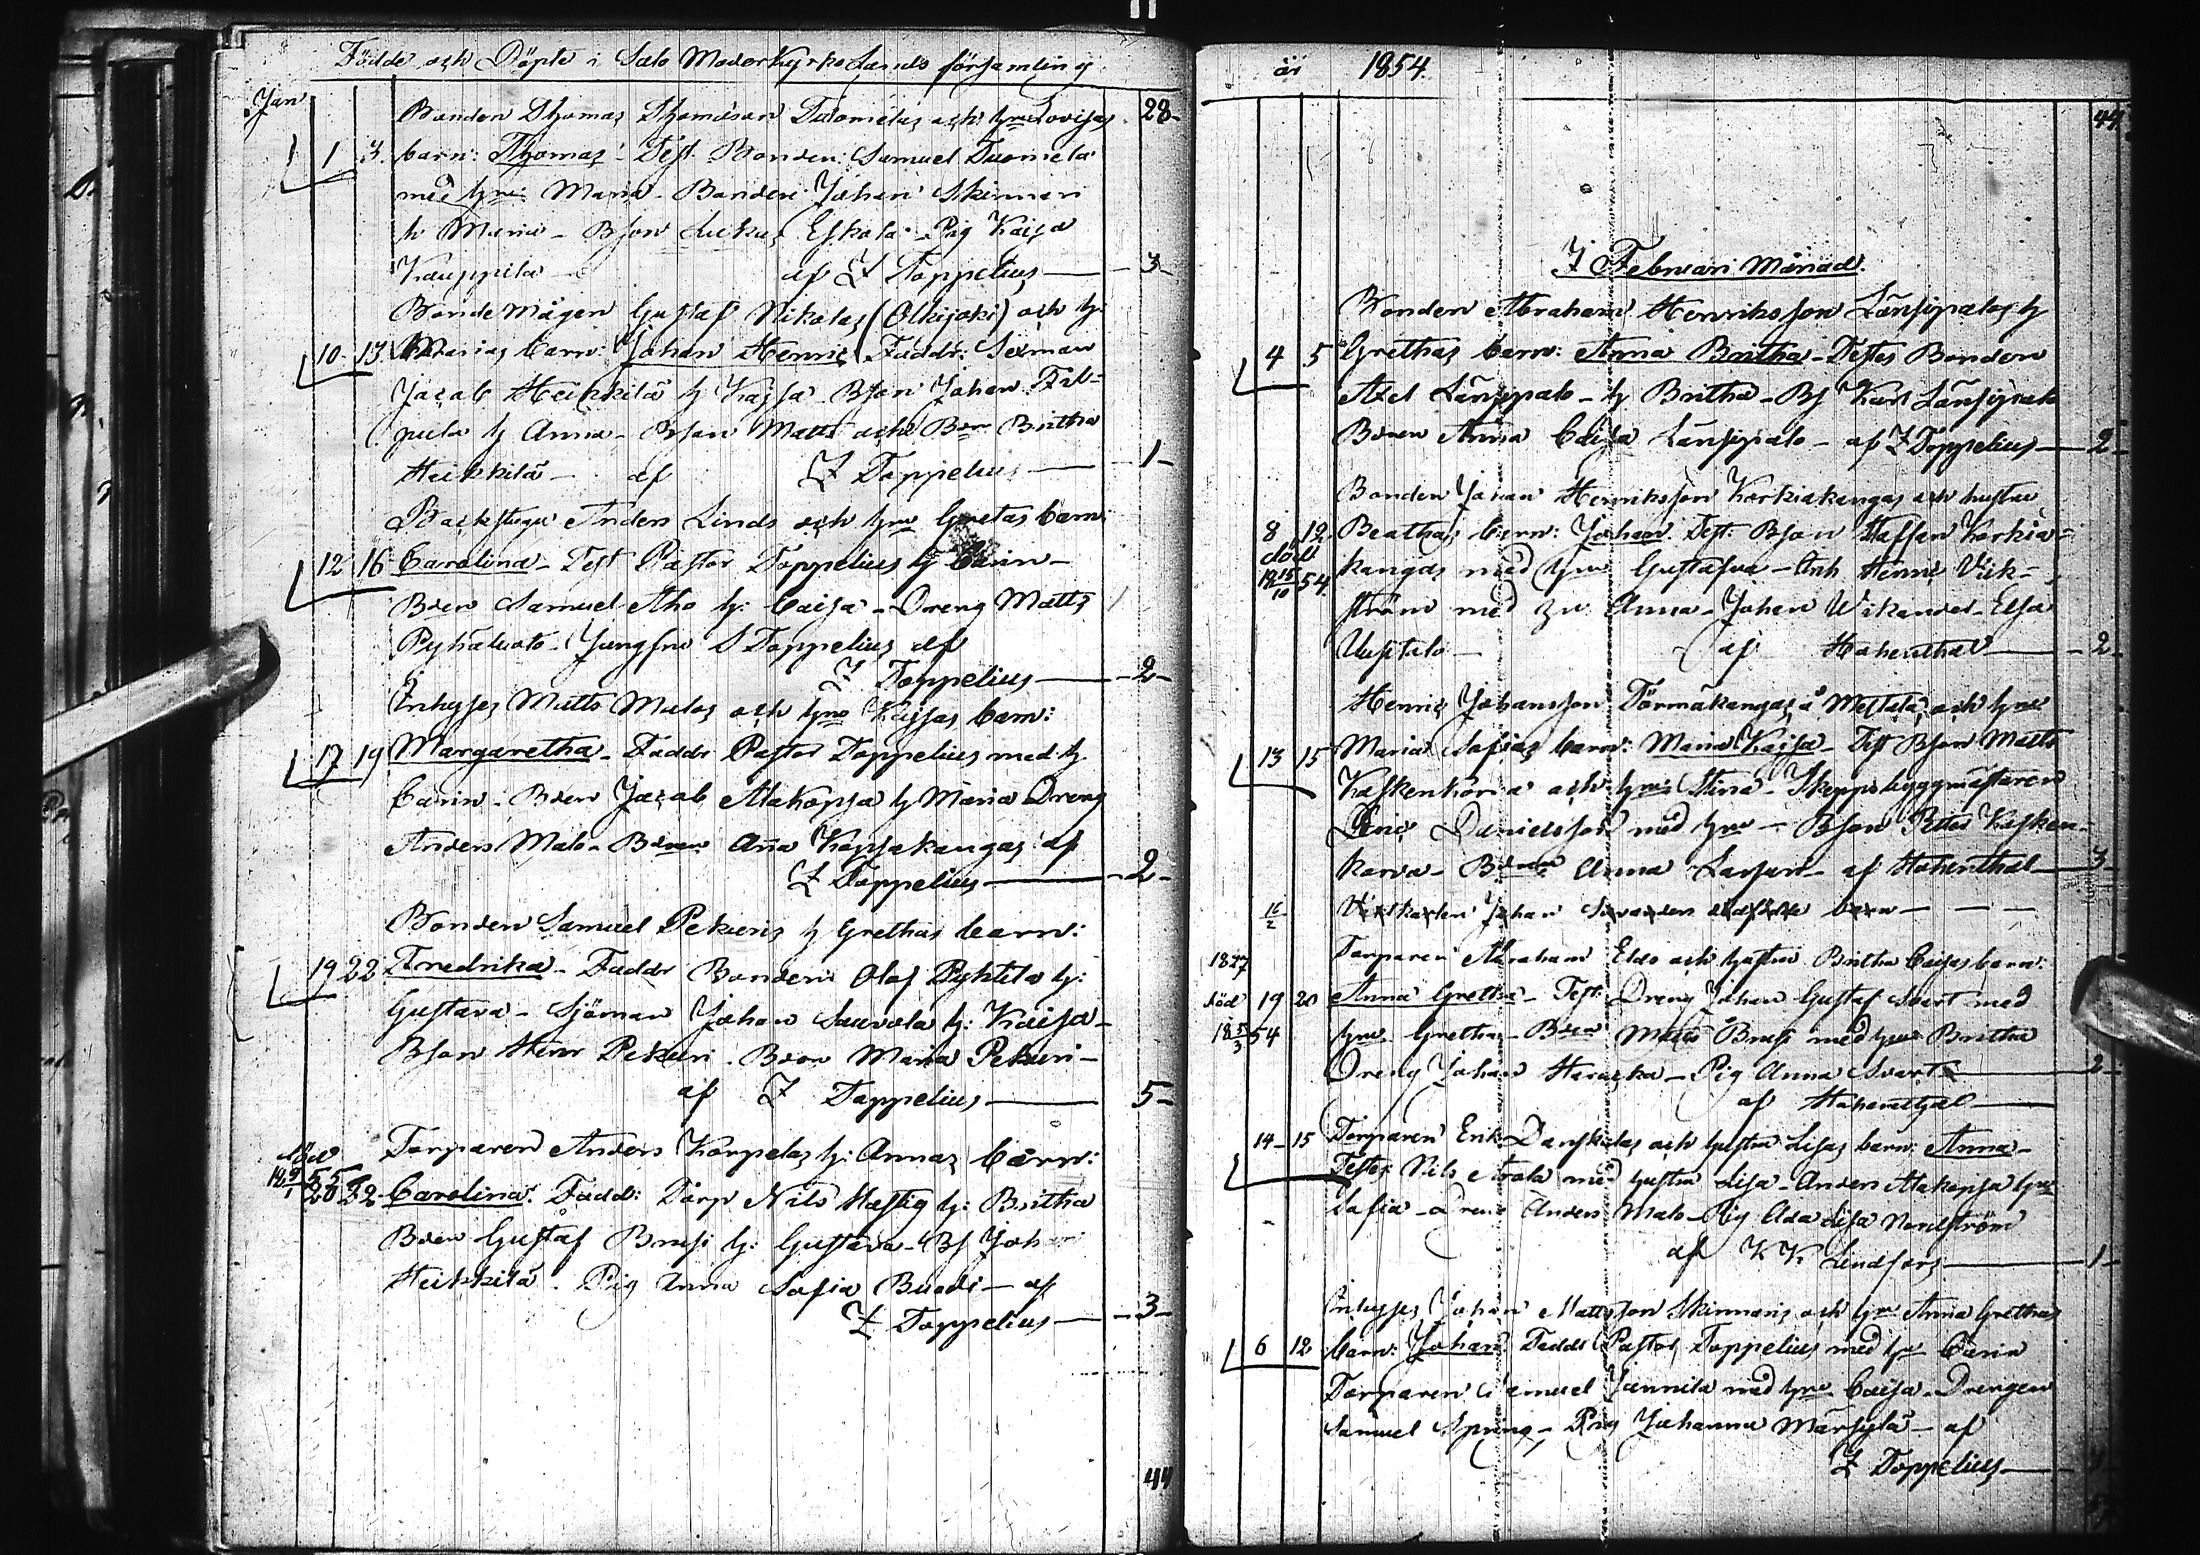 Födde och Döpte i Salo Moderkyrko Lands församling
Jan
Bonden Thomas Thomasson Tuomelas och hru Lovisas 28-
1 3. barn: Thomas - Test. Bonden: Samuel Tuomela
med hru Maria - Bonden Johan Skinnari
h Maria - Bson Lukas Eskola - Pig Kaisa
Kauppila - af Z Toppelius - 3 -
Bonde mågen Gustaf Nikolas (Olkijoki) och h:
10 - 13 Marias barn: Johan Henric Faddr: Sexman
Jacob Heikkilä h Kajsa - Bson Johan
h Anna - Bson Matts och Bdr Britha
Heikkilä - af Z Toppelius - 1 -
Backstugu Anders Linds och hru Gretas barn:
12 16 Carolina - Test Pastor Toppelius h Carin -
Bden Samuel Aho h: Caisa - Dreng Matts
Pyhäluoto - Jungfru S Toppelius af
Z Toppelius - 2 -
Inhyses Matts Malos och hru Kajsas barn:
17 19 Margaretha - Faddr Pastor Toppelius med h
Carin - Bden Jacob Alakopsa h Maria Dreng
Anders Malo - Bdr Ana Kopsakangas af
Z Toppelius - 2 -
Bonden Samuel Pekuris h Grethas barn:
19 22 Fredrika - Faddr Bonden Olof Pyhtilä h:
Gustava - Sjöman Johan Sauvola h: Kaisa -
Bson Henr Pekuri - Bdr Maria Pekuri -
af Z Toppelius - 5 -
död Torparen Anders Korpelas h: Annas barn:
20 22 Carolina. Fadd: Torp Nils Hästig h: Britha
Bden Gustaf Brusi h: Gustava - Bs Johan
Heikkilä - Pig Anna Sofia Buodi - af
Z Toppelius - 3 -
44
år 1854.
44
I Februari Månad.
Bonden Abraham Henriksson Länsipalos h
4 5 Grethas barn: Anna Britha - Testes Bonden
Axel Länsipalo - h Britha - Bs Karl Länsipalo
Bdren Anna Caisa Länsipalo - af Z Toppelius - 2 -
Bonden Johan Henriksson Korkiakangas och hustru
8 12 Beathas barn: Johan. Test. Bson Staffan Korkia-
död
kangas med hru Gustafva - Enk Henric Vik-
ström med hu Anna - Johan Wikander - Elsa
Uusitalo - af Hohenthal - 2 -
Henric Johansson Törmäkangas å Mestilä, och hru
13 15 Maria Sofias barn: Maria Kajsa - Test Bson Matts
Kaskenkorva och hru Stina - Skeppsbyggmästaren
Danielsson med hru - Bson Petter Kasken-
korva - Bdr Anna Larsen - af Hohenthal - 3 -
Johan dödfödde barn - - -
Torparen Abraham Elos och hustru Britha Caisas barn:
död 19 20 Anna Gretha - Test: Dreng Johan Gustaf Svart med
54 hru Gretha - Bden Matts Brusi med hru Britha
Dreng Johan - Pig Anna Svart - 2 -
af Hohenthal -
14 - 15 Torparen Erik och hustru Lisas barn Anna -
Testes Nils Arola med hustru Lisa - Anders Alakopsa hru
Sofia - Dreng Anders Malo - Pig Ada Lisa Nordström
af K K Lindfors - 1 -
Inhyses Johan Mattsson Skinnaris och hru Anna Grethas
6 12 barn: Johan Faddr Pastor Toppelius med hru Carin
Torparen Samuel Junnila med hru Caisa - Drengen
Samuel Spring - Pig Johanna Marsylä - af
Z Toppelius -